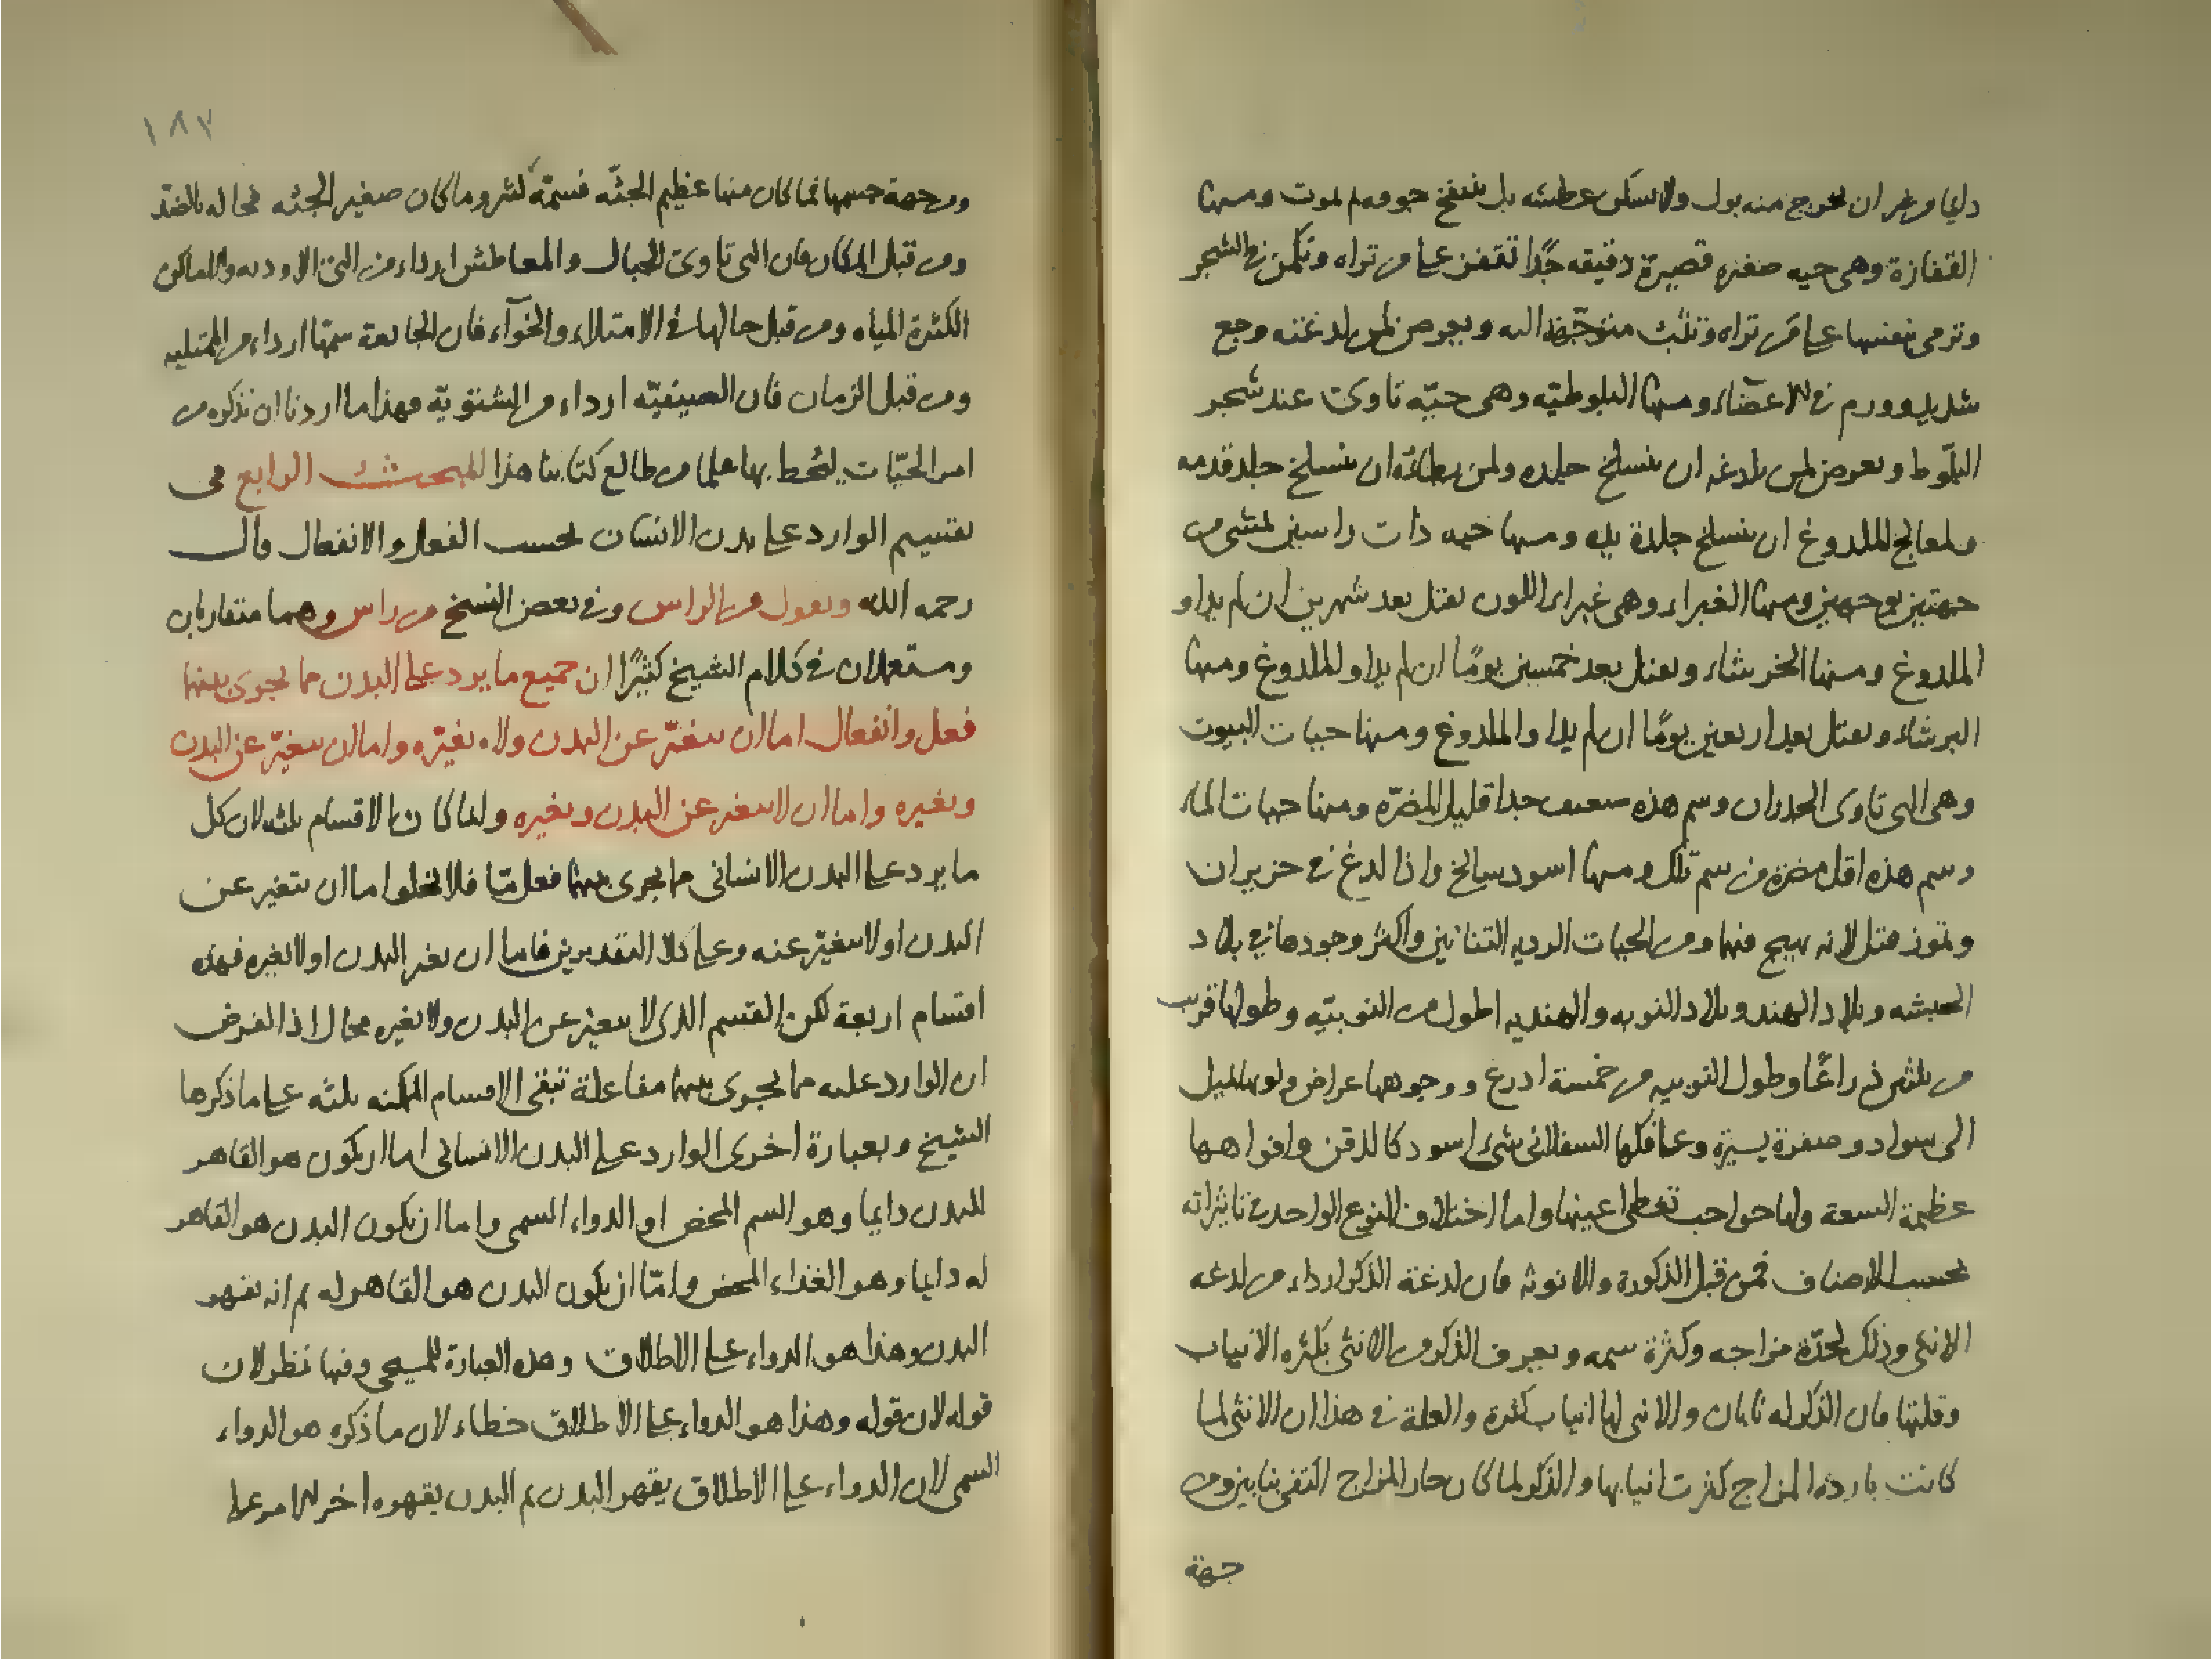 دايما من غير ان يخرج منه بول ولا يسكن عطشه بل ينتفخ جوفه ثم يموت ومنها
القفازة وهى حيه صغيره قصيرة دقيقه جدًا تقفز على من تراه وتكمن فى الشجر
وترمى بنفسها على من تراه وتثب متوجهة اليه ويعرض لمن لدغته وجع
شديد وورم فى الاعضاء ومنها البلوطيه وهى حيّه تاوى عند شجر
البلّوط ويعرض لمن تلدغه ان ينسلخ جلده ولمن يطأه ان ينسلخ جلد قدمه
ولمعالج الملدوغ ان ينسلخ جلدة يده ومنها حيه ذات راسين تمشى من
جهتين بوجهين ومنها الغبراء وهى غبراء اللون تقتل بعد شهرين ان لم يداو
الملدوغ ومنها الخرشاء وتقتل بعد خمسين يومًا ان لم يداو الملدوغ ومنها
البرشاء وتقتل بعد اربعين يومًا ان لم يداو الملدوغ ومنها حيات البيوت
وهى التى تاوى الجدران وسم هذه ضعيف جدا قليل المضرّه ومنها حيات الماء
وسم هذه اقل مضرة من سم تلك ومنها اسود سالخ واذا لدغ فى حزيران
وتموز قتل لانه يهيج فيهما ومن الحيات الرديه التنانين واكثر وجودها فى بلاد
الحبشه وبلاد الهند وبلاد النوبه والهنديه اطول من النوبيّه وطولها قريب
من ثلثين ذراعًا وطول النوبيه من خمسة اذرع ووجوهها عراض ولونها يميل
الى سواد وصفرة يسيرة وعلى فكها السفلانى شىء اسود كالذقن وافواهها
عظيمة السعة ولها حواجب تغطى اعينها واما اختلاف النوع الواحد فى تاثيراته
بحسب الاصناف فمن قبل الذكورة والانوثه فان لدغة الذكر ارداء من لدغه
الانثى وذلك لحدّة مزاجه وكثرة سمه ويعرف الذكر من الانثى بكثره الانياب
وقلتها فان الذكر له نابان والانثى لها انياب كثيرة والعلة فى هذا ان الانثى لما
كانت باردة المزاج كثرت انيابها والذكر لما كان حار المزاج اكتفى بنابين ومن
جهة
١٨٧
ومن جهة جسمها فما كان منها عظيم الجثّه فسمّه كثير وما كان صغير الجثه فحاله بالضد
ومن قبل المكان فان التى تاوى الجبال والمعاطش ارداء من التى الاوديه والاماكن
الكثيرة المياه ومن قبل حالها فى الامتلاء والخوآء فان الجايعة سمّها ارداء من الممتليه
ومن قبل الزمان فان الصيفيّه ارداء من الشتويّه فهذا ما اردنا ان نذكره من
امر الحيّات ليحط بها علما من طالع كتابنا هذا المبحث الرابع فى
تقسيم الوارد على بدن الانسان بحسب الفعل والانفعال قال
رحمه الله ونعول من الراس وفى بعض النسخ من راس وهما متقاربان
ومستعملان فى كلام الشيخ كثيرًا ان جميع ما يرد على البدن مما يجرى بينهما
فعل وانفعال اما ان يتغيّر عن البدن ولا يغيّره واما ان يتغيّر عن البدن
ويغيره واما ان لا يتغير عن البدن ويغيره وانما كان الاقسام ثلثه لان كل
ما يرد على البدن الانسانى مما يجرى بينهما فعل مّا فلا يخلوا اما ان يتغير عن
البدن او لا يتغيّر عنه وعلى كلا التقديرين فاما ان يغير البدن او لا يغيره فهذه
اقسام اربعة لكن القسم الذى لا يتغير عن البدن ولا يغيره محال اذ الفرض
ان الوارد عليه مما يجرى بينهما مفاعلة تبقى الاقسام الممكنه ثلثه على ما ذكرها
الشيخ وبعبارة اخرى الوارد على البدن الانسانى اما ان يكون هو القاهر
للبدن دايما وهو السم المحض او الدواء السمى واما ان يكون البدن هو القاهر
له دايما وهو الغذاء المحض وامّا ان يكون البدن هو القاهر له ثم انه يقهر
البدن وهذا هو الدواء على الاطلاق وهذه العبارة للمسيحى وفيها نظر لان
قوله لان قوله وهذا هو الدواء على الاطلاق خطاء لان ما ذكره هو الدواء
السمى لان الدواء على الاطلاق يقهر البدن ثم البدن يقهره اخر الامر على